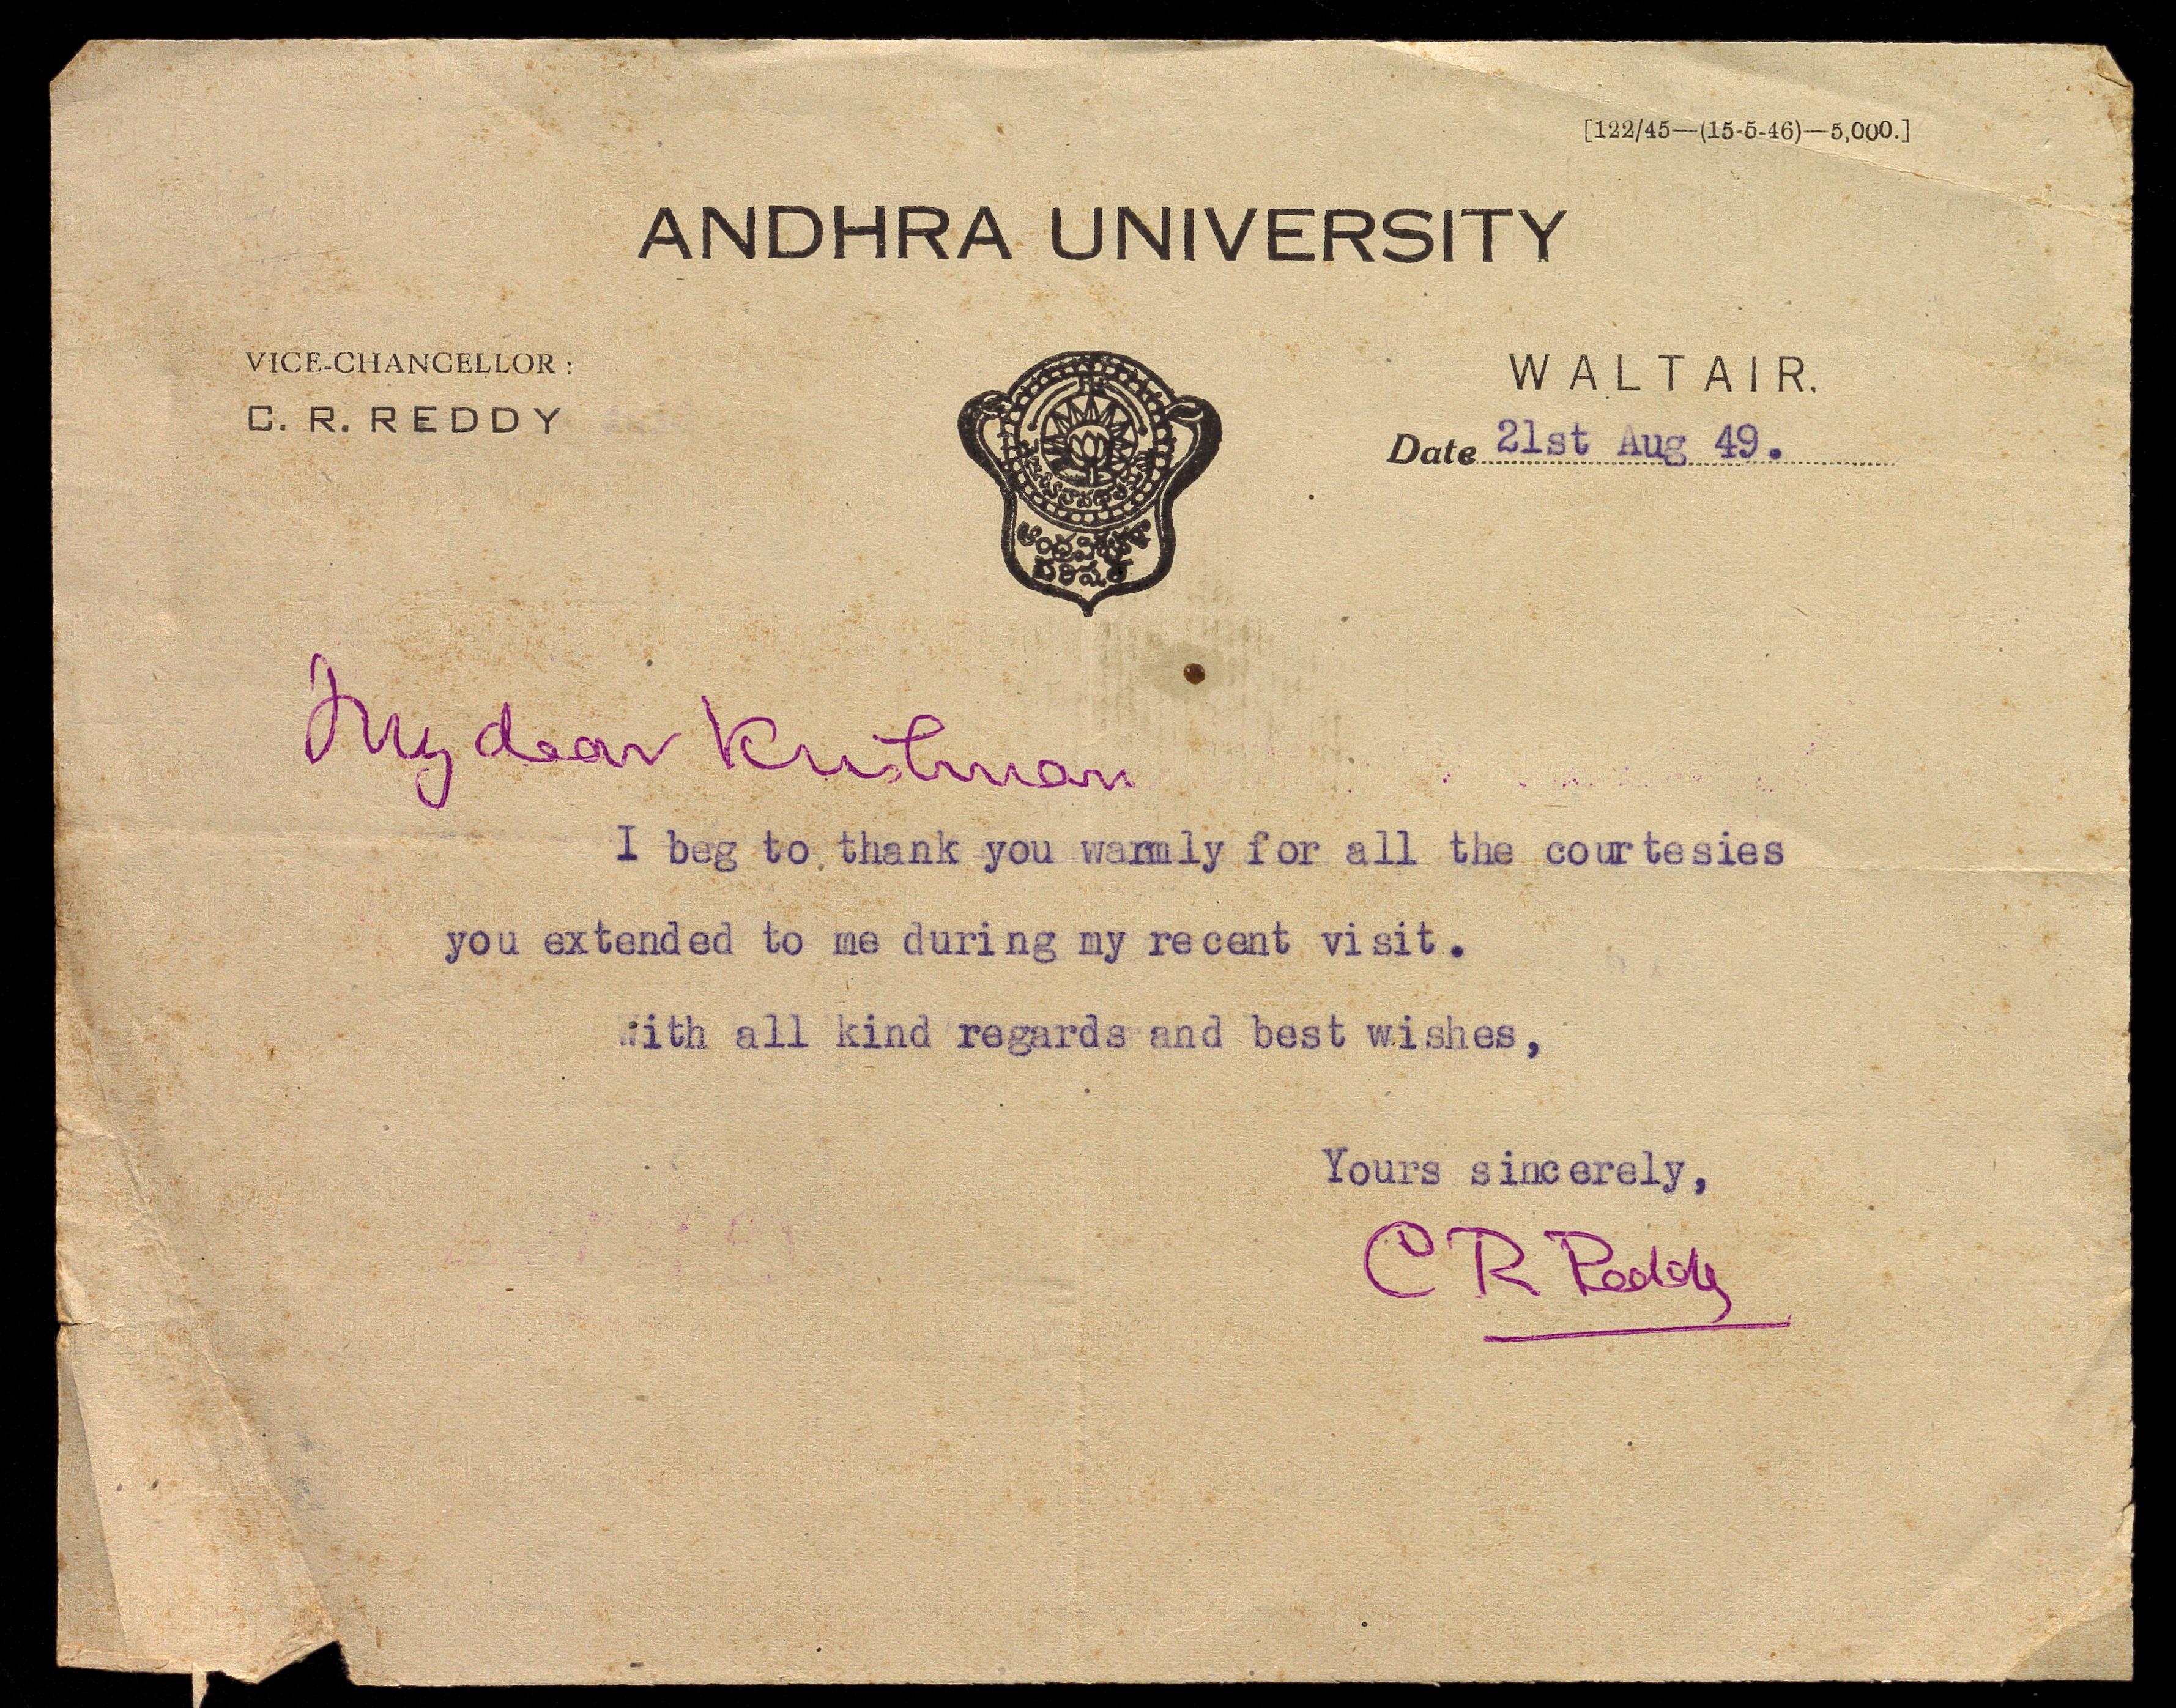 [122/45—(15-5-46)—5,000.]
ANDHRA UNIVERSITY
VICE-CHANCELLOR:
C. R. REDDY
WALTAIR.
Date 21st Aug 49.
My dear Krishnan
I beg to thank you warmly for all the courtesies
you extended to me during my recent visit.
With all kind regards and best wishes,
Yours sincerely,
C R Reddy